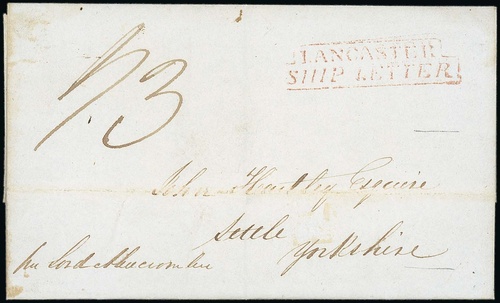 LANCASTER
SHIP LETTER
1/3
John Esquire
Settle
Yorkshire
per Lord Abercrombie